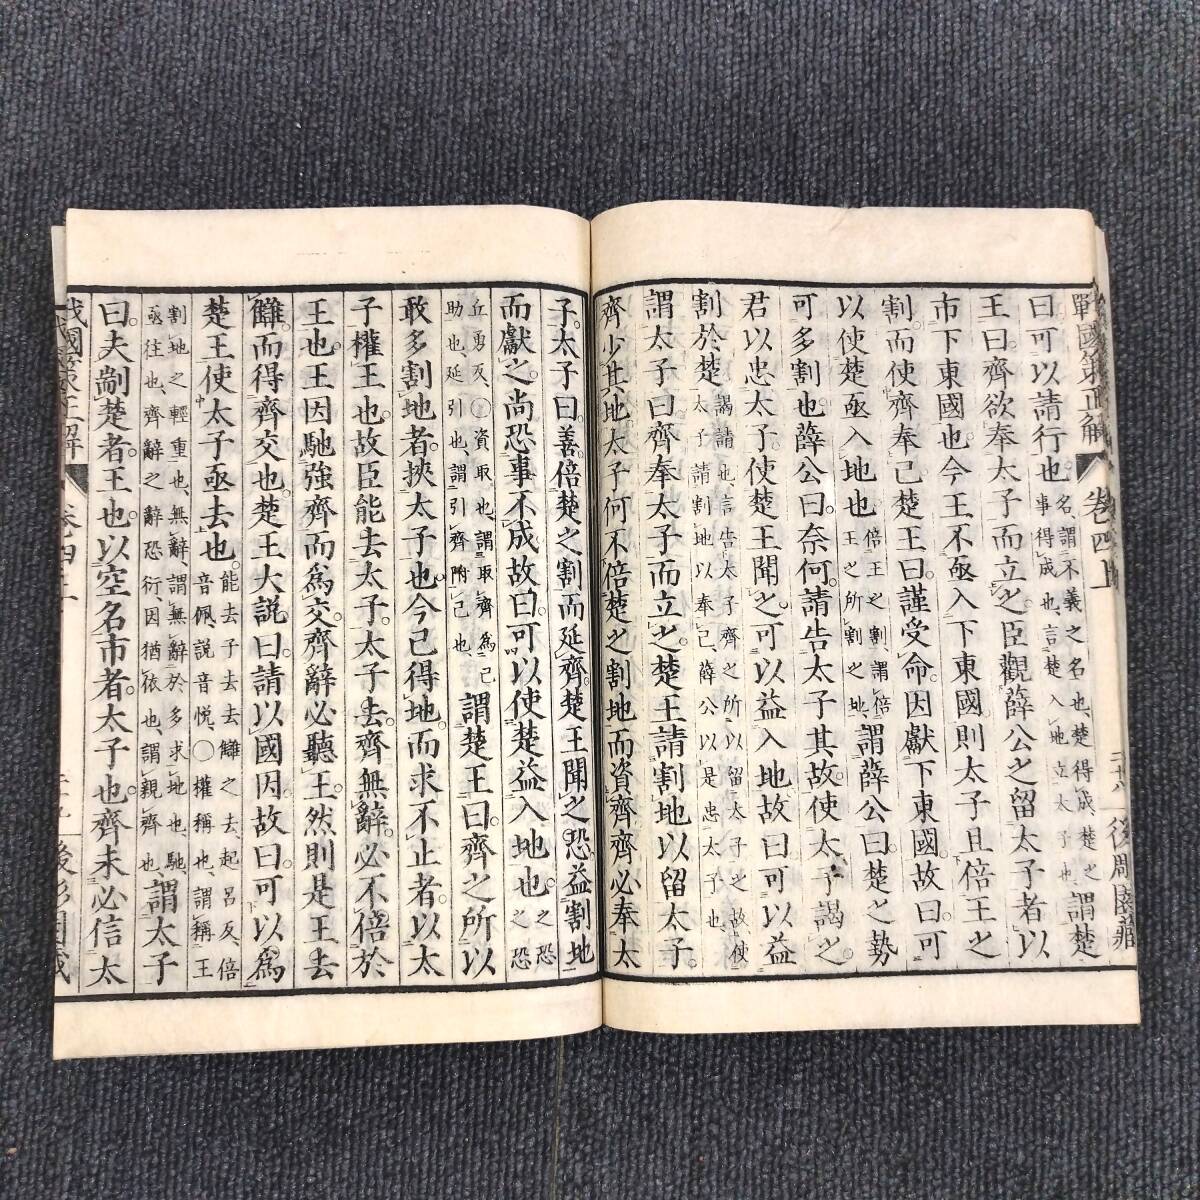 戰國策正解
卷四上
後周園藏
曰可以請行也名謂不義之名也楚得成楚之事得成也言楚入地立太子也謂楚
王曰齊欲奉太子而立之臣觀薛公之留太子者以
市下東國也今王不亟入下東國則太子且倍王之
割而使齊奉己楚王曰謹受命因獻下東國故曰可
以使楚亟入地也倍王之割謂倍王之所割之地謂薛公曰楚之勢
可多割也薛公曰奈何請告太子其故使太子謁之
君以忠太子使楚王聞之可以益入地故曰可以益
割於楚謁請也言告太子齊之所以留太子之故使太子請割地以奉己薛公以是忠太子也
謂太子曰齊奉太子而立之楚王請割地以留太子
齊少其地太子何不倍楚之割地而資齊齊必奉太
子太子曰善倍楚之割而延齊楚王聞之恐益割地
而獻之尚恐事不成故曰可以使楚益入地也之恐
丘勇反○資取也謂取齊爲己助也延引也謂引齊附己也謂楚王曰齊之所以
敢多割地者挾太子也今已得地而求不止者以太
子權王也故臣能去太子太子去齊無辭必不倍於
王也王因馳強齊而爲交齊辭必聽王然則是王去
讎而得齊交也楚王大說曰請以國因故曰可以爲
楚王使太子亟去也能去子去去讎之去起呂反倍音佩說音悅○權稱也謂稱王
割地之輕重也無辭謂無辭於多求地也馳亟往也齊辭之辭恐衍因猶依也謂親齊也謂太子
曰夫剬楚者王也以空名市者太子也齊未必信太